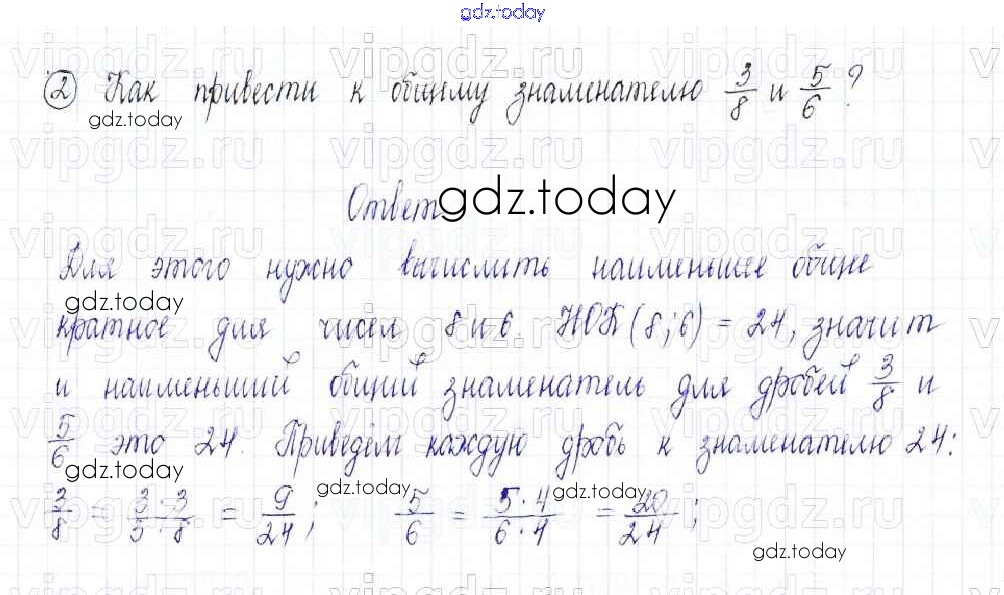 gdz.today
② Как привести к общему знаменателю 3/8 и 5/6?
gdz.today
Ответ
gdz.today
Для этого нужно вычислить наименьшее общее
gdz.today
кратное для чисел 8 и 6. НОК (8;6) = 24, значит
и наименьший общий знаменатель для дробей 3/8 и
5/6 это 24. Приведём каждую дробь к знаменателю 24:
gdz.today
3/8 = 3·3/5·8 = 9/24; 5/6 = 5·4/6·4 = 20/24;
gdz.today gdz.today
gdz.today
vipgdz.ru vipgdz.ru vipgdz.ru vipgdz.ru